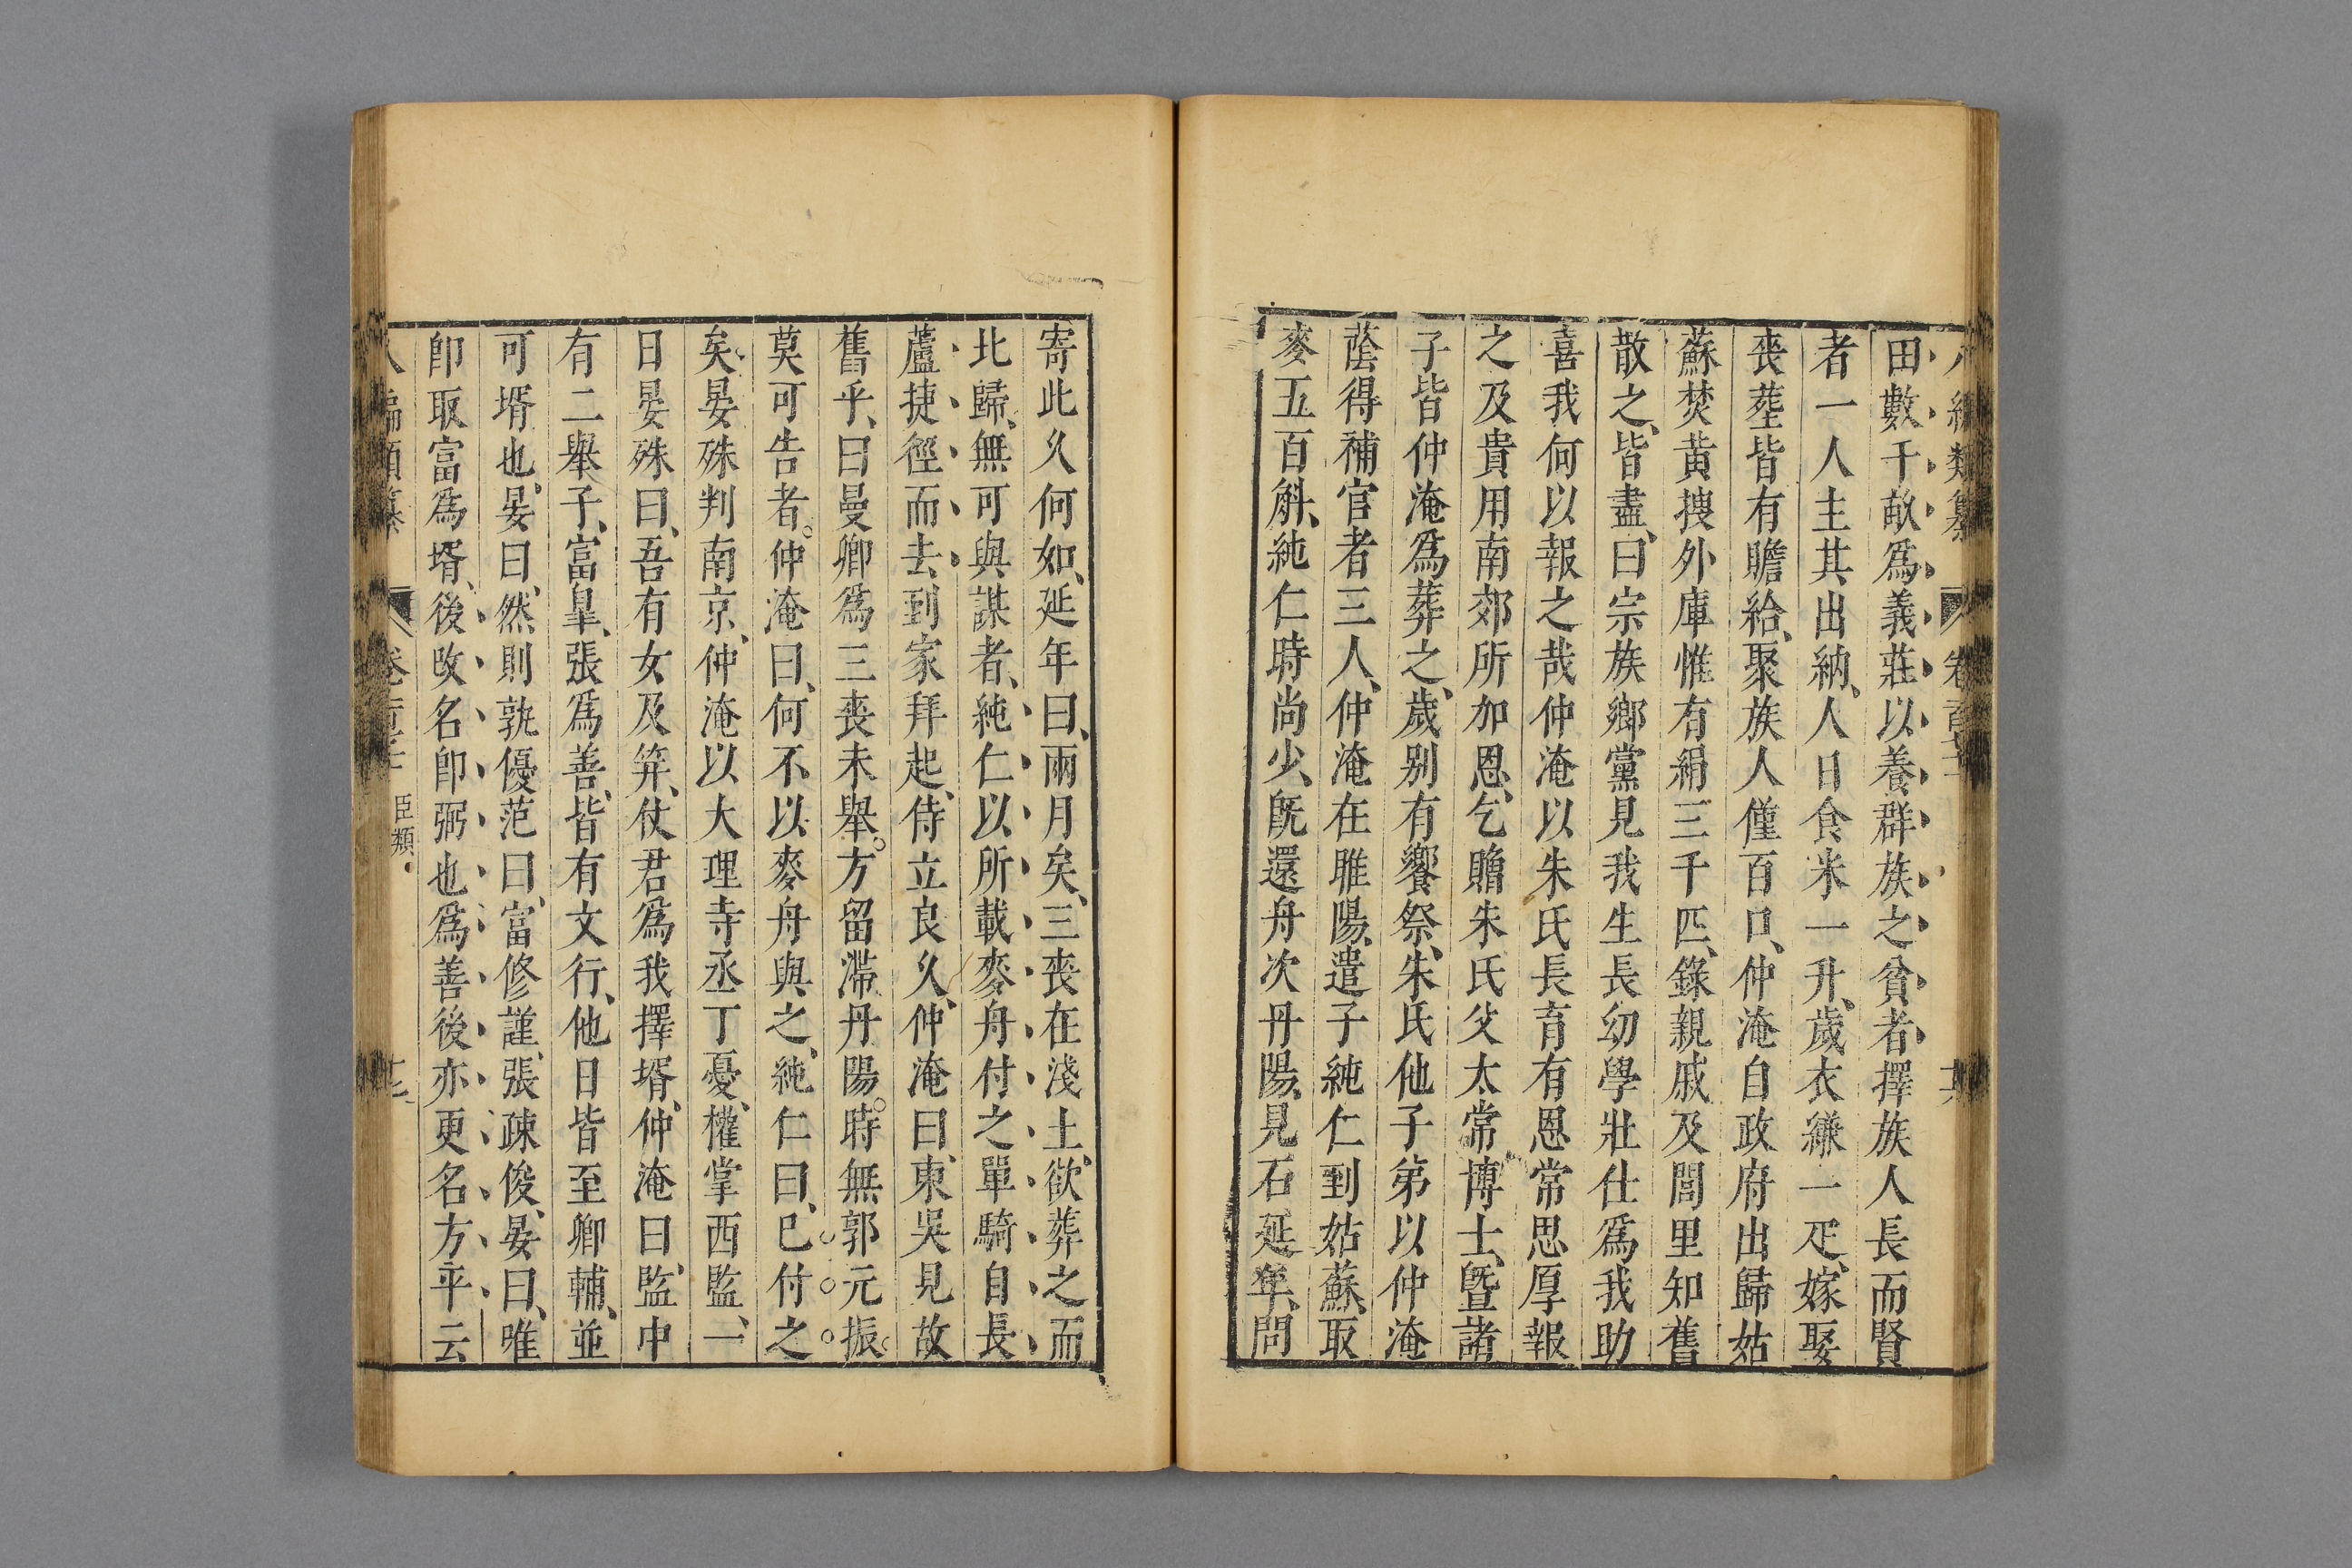 八編類纂 卷百
田數千畝爲義莊以養群族之貧者擇族人長而賢
者一人主其出納、人日食米一升、歲衣縑一疋、嫁娶
喪塟皆有贍給、聚族人僅百口、仲淹自政府出歸姑
蘇焚黃搜外庫惟有絹三千匹、錄親戚及閭里知舊
散之、皆盡、曰宗族鄉黨見我生長幼學壯仕爲我助
喜我何以報之哉仲淹以朱氏長育有恩常思厚報
之及貴用南郊所加恩、乞贈朱氏父太常博士、曁諸
子皆仲淹爲葬之、歲别有饗祭、朱氏他子弟以仲淹
蔭得補官者三人、仲淹在睢陽、遣子純仁到姑蘇、取
麥五百斛、純仁時尚少、旣還舟次丹陽、見石延年、問
寄此久何如、延年曰、兩月矣、三喪在淺土、欲葬之而
北歸、無可與謀者、純仁以所載麥舟付之單騎自長
蘆捷徑而去、到家拜起、侍立良久、仲淹曰、東吳見故
舊乎、曰曼卿爲三喪未舉。方留滯丹陽。時無郭元振。
莫可告者。仲淹曰、何不以麥舟與之、純仁曰、已付之
矣。晏殊判南京、仲淹以大理寺丞丁憂、權掌西監、一
日晏殊曰、吾有女及筓、仗君爲我擇壻、仲淹曰、監中
有二舉子、富臯、張爲善、皆有文行、他日皆至卿輔、並
可壻也、晏曰、然則孰優范曰、富修謹、張疎俊、晏曰、唯
卽取富爲壻、後改名卽弼也爲善後亦更名方平云
八編類纂 卷 臣類 十七